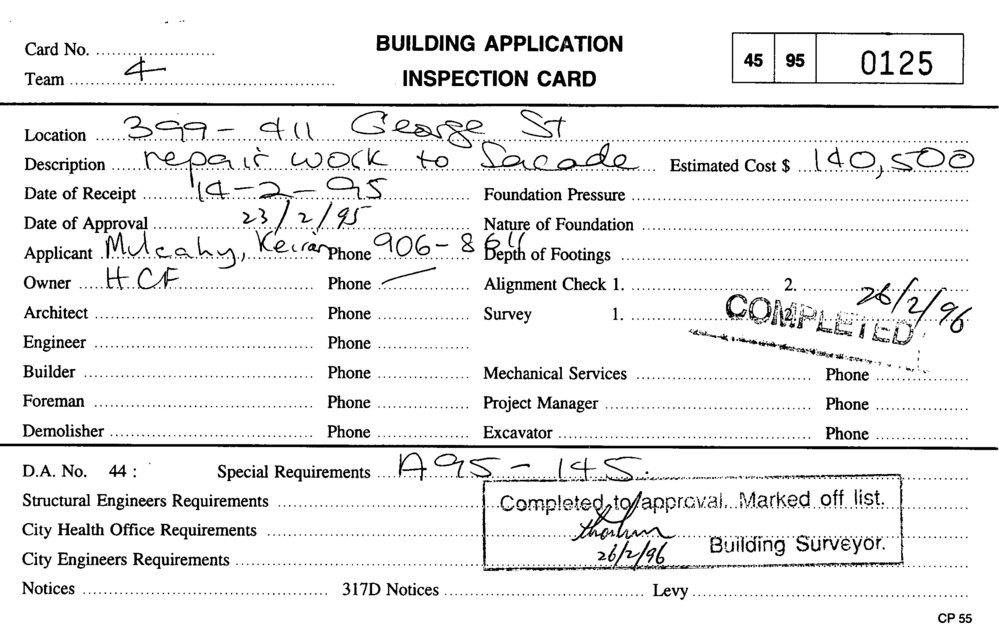 Card No. ........................
BUILDING APPLICATION
INSPECTION CARD
45 95 0125
Team 4
Location 399-411 George St
Description repair work to Sacade Estimated Cost $ 140,500
Date of Receipt 14-2-95 Foundation Pressure
Date of Approval 23/2/95 Nature of Foundation
Applicant Mulcahy, Keiran Phone 906-8611 Depth of Footings
Owner HCF Phone — Alignment Check 1. 2. 26/2/96
Architect Phone Survey 1. 2. COMPLETED
Engineer Phone
Builder Phone Mechanical Services Phone
Foreman Phone Project Manager Phone
Demolisher Phone Excavator Phone
D.A. No. 44 : Special Requirements A95-145.
Structural Engineers Requirements
Completed to approval. Marked off list.
City Health Office Requirements
26/2/96 Building Surveyor.
City Engineers Requirements
Notices 317D Notices Levy
CP 55